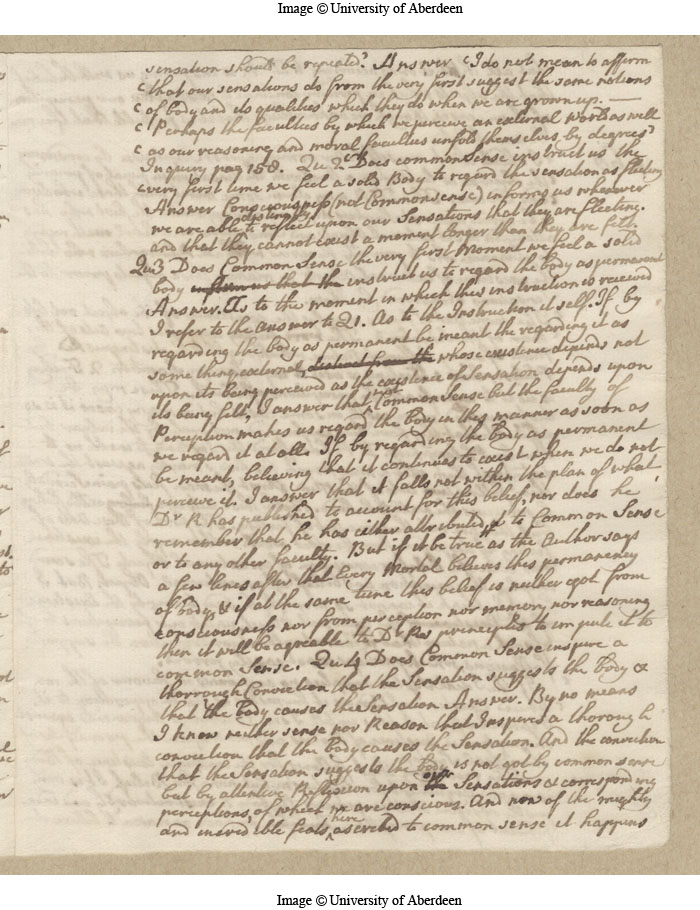 Image © University of Aberdeen
sensation should be repeated? Answer 'I do not mean to affirm
'that our sensations do from the very first suggest the same notions
'of body and its qualities which they do when we are grown up. —
'Perhaps the faculties by which we perceive an external World as well
'as our reasoning and moral faculties unfold themselves by degrees'
Inquiry pag 158. Qu 2d Does common Sense instruct us the
very first time we feel a solid Body to regard the sensation as fleeting
Answer Consciousness (not Common sense) informs us whenever
we are able distinctly to reflect upon our Sensations that they are fleeting.
and that they cannot exist a moment longer than they are felt.
Qu 3 Does Common Sense the very first Moment we feel a solid
body inform us that the instruct us to regard the body as permanent
Answer. As to the moment in which this instruction is received
I refer to the answer to Q1. As to the Instruction it self. If by
regarding the body as permanent be meant the regarding it as
some thing external, distinct from the whose existence depends not
upon its being perceived as the existence of Sensation depends upon
its being felt, I answer that not Common Sense but the faculty of
Perception makes us regard the body in this manner as soon as
we regard it at all. If by regarding the body as permanent
be meant, believing that it continues to exist when we do not
perceive it. I answer that it falls not within the plan of what
Dr R has published to account for this belief, nor does he
remember that he has either attributed it to Common Sense
or to any other faculty. But if it be true as the Author says
a few lines after that Every Mortal believes this permanency
of body, & if at the same time this belief is neither got from
consciousness nor from perception nor memory nor reasoning
then it will be agreable to Dr Rs principles to impute it to
common Sense. Qu 4 Does Common Sense inspire a
thorough Conviction that the Sensation suggests the body &
that the body causes the Sensation Answer. By no means
I know neither sense nor Reason that Inspires a thorough
conviction that the Body causes the Sensation. And the conviction
that the Sensation suggests the body is not got by common sense
but by attentive Reflexion upon our Sensations & corresponding
perceptions, of which we are conscious. And now of the mighty
and incredible feats here ascribed to common sense it happens
Image © University of Aberdeen